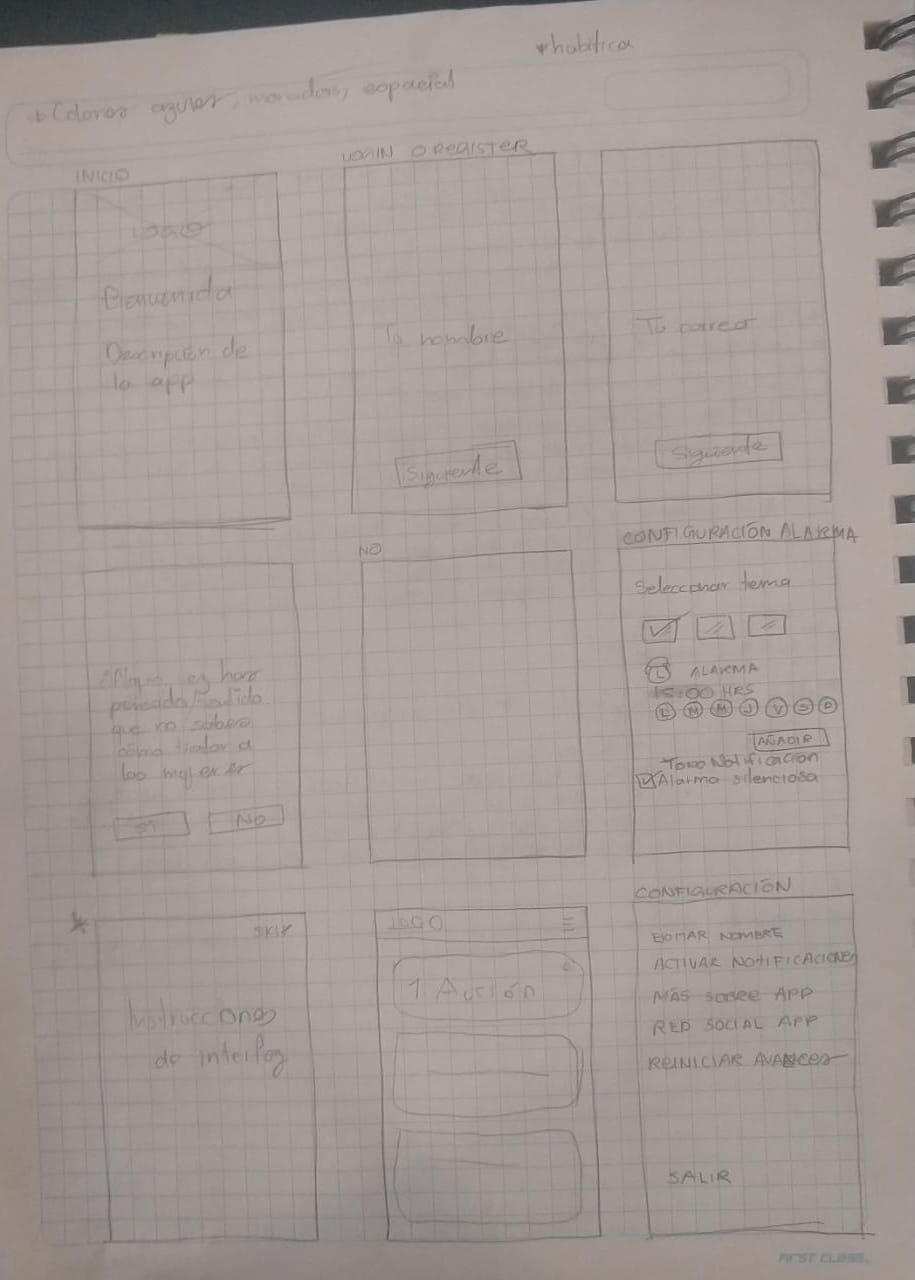 habitica
Colores azules, morados, espacial
INICIO
LOGO
Bienvenida
Descripción de
la app
LOGIN O REGISTER
Tu nombre
Siguiente
Tu correo
Siguiente
pensado/sentido
que no sabes
cómo tratar a
las mujeres
SI
NO
NO
CONFIGURACIÓN ALARMA
Seleccionar tema
ALARMA
15:00 HRS
L M M J V S D
AÑADIR
Tono Notificación
Alarma silenciosa
SKIP
Instrucciones
de interfaz
LOGO
1 Acción
CONFIGURACIÓN
EDITAR NOMBRE
ACTIVAR NOTIFICACIONES
MÁS SOBRE APP
RED SOCIAL APP
REINICIAR AVANCES
SALIR
FIRST CLASS